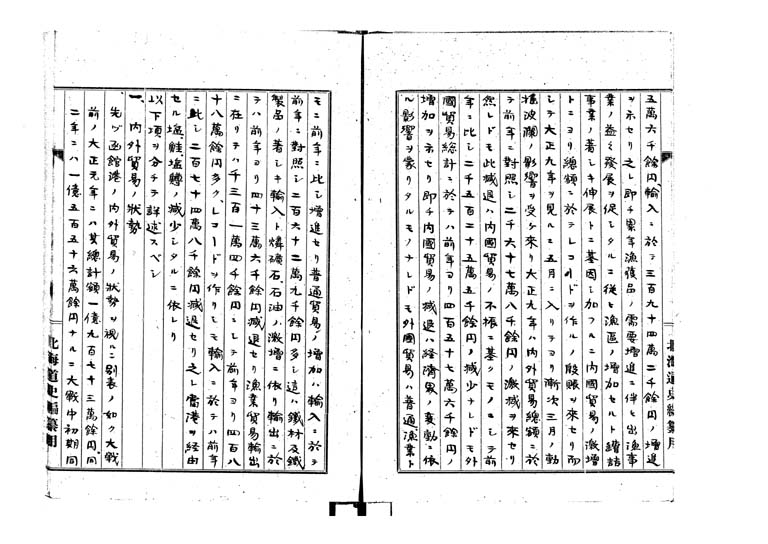 五萬六千餘円、輸入ニ於テ三百九十四萬二千餘円ノ増進
ヲ示セリ之レ即チ累年漁獲品ノ需要増進ニ伴ヒ出漁事
業ノ益々發展ヲ促シタルニ從ヒ漁區ノ増加セルト罐詰
事業ノ著シキ伸展トニ基因シ加フルニ内國貿易ノ激増
トニヨリ總額ニ於テレコードヲ作ルノ殷賑ヲ來セリ而
シテ大正九年ヲ見ルニ五月ニ入リヨリ漸次三月ノ動
搖波瀾ノ影響ヲ受ケ來リ大正九年ハ内外貿易總額ニ於
テ前年ニ對照シ二千六十七萬八千餘円ノ激減ヲ來セリ
然レドモ此減退ハ内國貿易ノ不振ニ基クモノニシテ前
年ニ比シ二千五百二十五萬五千餘円ノ減少ナレドモ外
國貿易總計ニ於テハ前年ヨリ四百五十七萬六千餘円ノ
増加ヲ示セリ即チ内國貿易ノ減退ハ經濟界ノ変動ニ依
ル影響ヲ蒙リタルモノナレドモ外國貿易ハ普通漁業ト
モニ前年ニ比シ増進セリ普通貿易ノ増加ハ輸入ニ於テ
前年ニ對照シ二百六十二萬九千餘円多シ這ハ鐵材及鐵
製品ノ著シキ輸入ト燐礦石石油ノ激増ニ依リ輸出ニ於
テハ前年ヨリ四十三萬六千餘円減退セリ漁業貿易輸出
ニ在リテハ千三百一萬四千餘円ニシテ前年ヨリ四百八
十八萬餘円多ク、レコードヲ作リシモ輸入ニ於テハ前年
ニ比シ二百七十四萬八千餘円減退セリ之レ當港ヲ経由
セル塩鮭塩鱒ノ減少シタルニ依レリ
以下項ヲ分チテ詳述スベシ
一、内外貿易ノ狀勢
先ヅ函館港ノ内外貿易ノ狀勢ヲ視ルニ別表ノ如ク大戰
前ノ大正元年ニハ其總計額一億九百七十三萬餘円同
二年ニハ一億五百五十六萬餘円ナルニ大戰中初期同
北海道史編纂用
北海道史編纂用